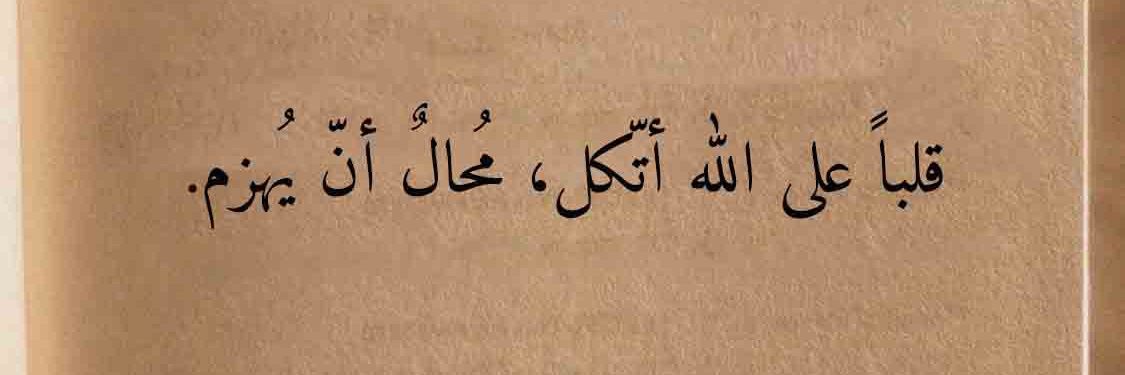 قلباً على الله أتّكل، مُحالٌ أنّ يُهزم.